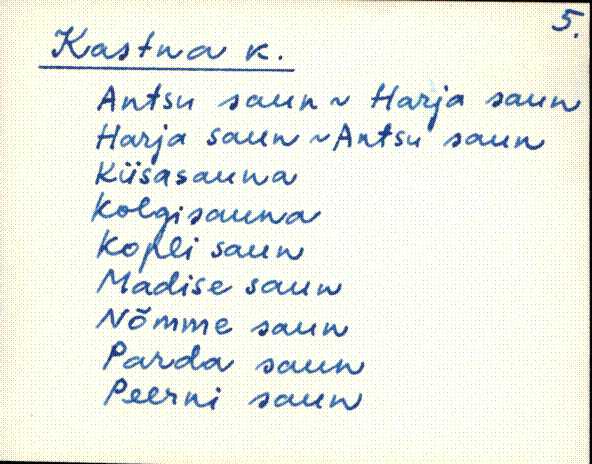 5.
Kastna k.
Antsu saun ~ Harja saun
Harja saun ~ Antsu saun
Kiisasauna
Kolgisauna
Kopli saun
Madise saun
Nõmme saun
Parda saun
Peerni saun